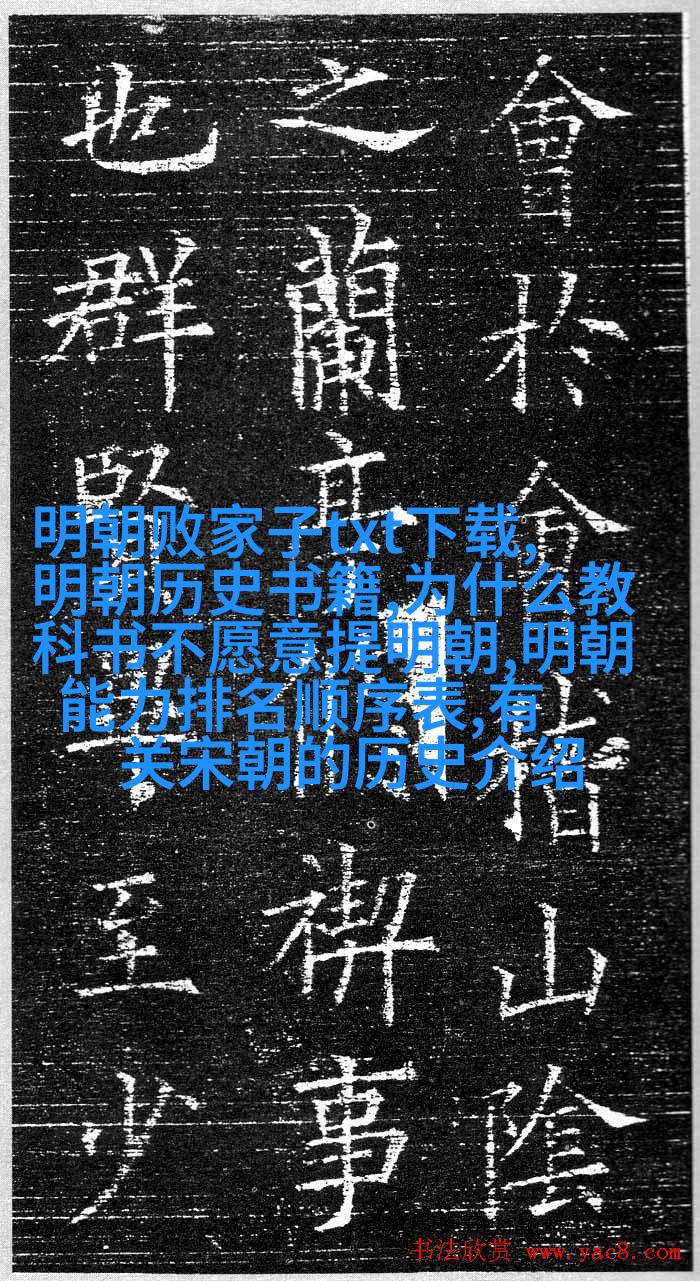 會於會稽山陰
之蘭亭禊事
也群賢至少
明朝败家子txt下载,
明朝历史书籍,为什么教
科书不愿意提明朝,明朝
能力排名顺序表,有
关宋朝的历史介绍
书法欣赏 www.yac8.com